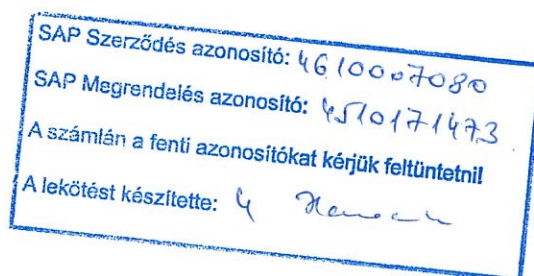 SAP Szerződés azonosító: 4610007080
SAP Megrendelés azonosító: 4510171473
A számlán a fenti azonosítókat kérjük feltüntetni!
A lekötést készítette: